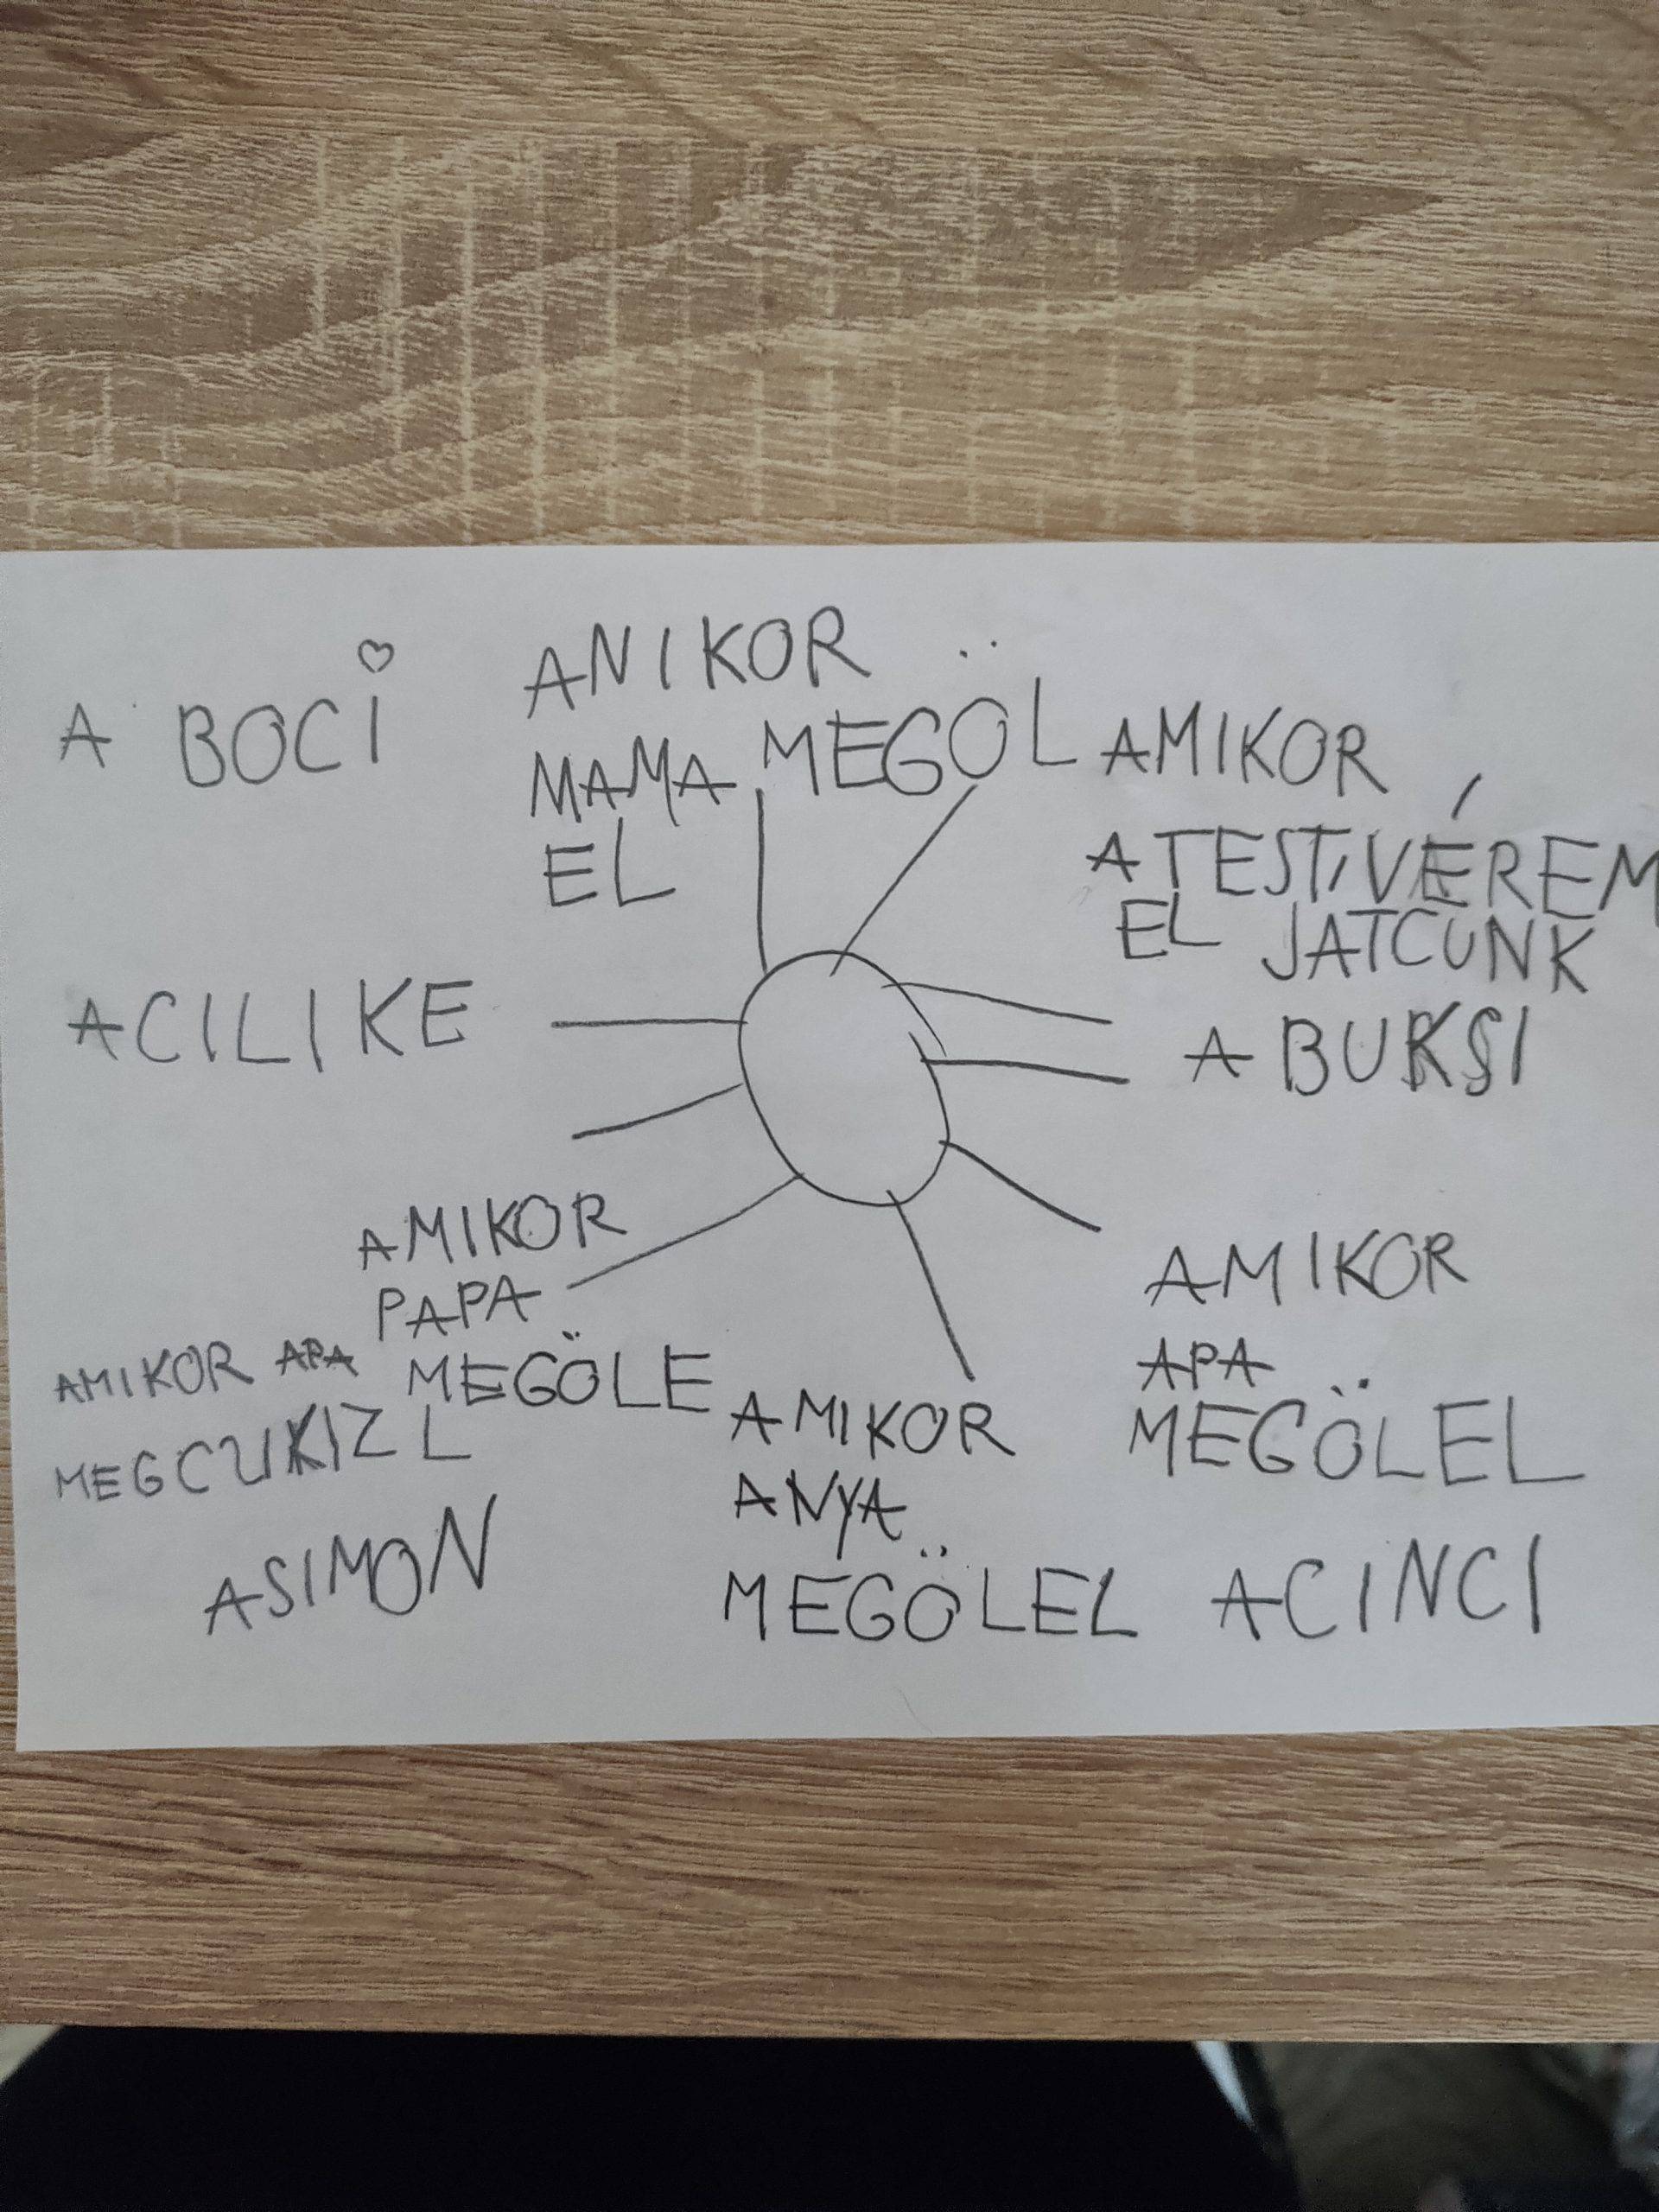 A BOCI
ANIKOR
MAMA MEGÖL
EL
AMIKOR
A TESTIVÉREM
EL JATCUNK
ACILIKE
A BUKSI
AMIKOR
PAPA
MEGÖLE
L
AMIKOR APA
MEGCUKIZ
ASIMON
AMIKOR
ANYA
MEGÖLEL
AMIKOR
APA
MEGÖLEL
ACINCI